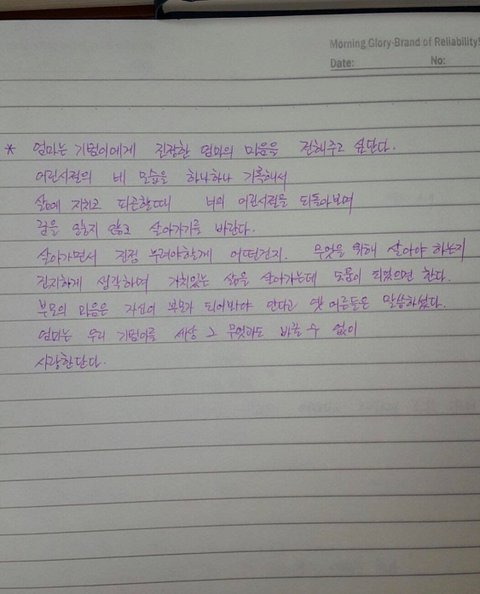 Morning Glory-Brand of Reliability!
Date: No:
* 엄마는 기범이에게 진작한 엄마의 마음을 전해주고 싶단다.
어린시절의 네 모습을 하나하나 기록해서
삶에 지치고 피곤할때 너의 어린시절을 되돌아보며
꿈을 잃지 않고 살아가기를 바란다.
살아가면서 진정 누려야할게 어떤건지. 무엇을 위해 살아야 하는지
진지하게 생각하며 가치있는 삶을 살아가는데 도움이 되었으면 한다.
부모의 마음은 자신이 부모가 되어봐야 안다고 옛 어른들은 말씀하셨다.
엄마는 우리 기범이를 세상 그 무엇과도 바꿀 수 없이
사랑한단다.